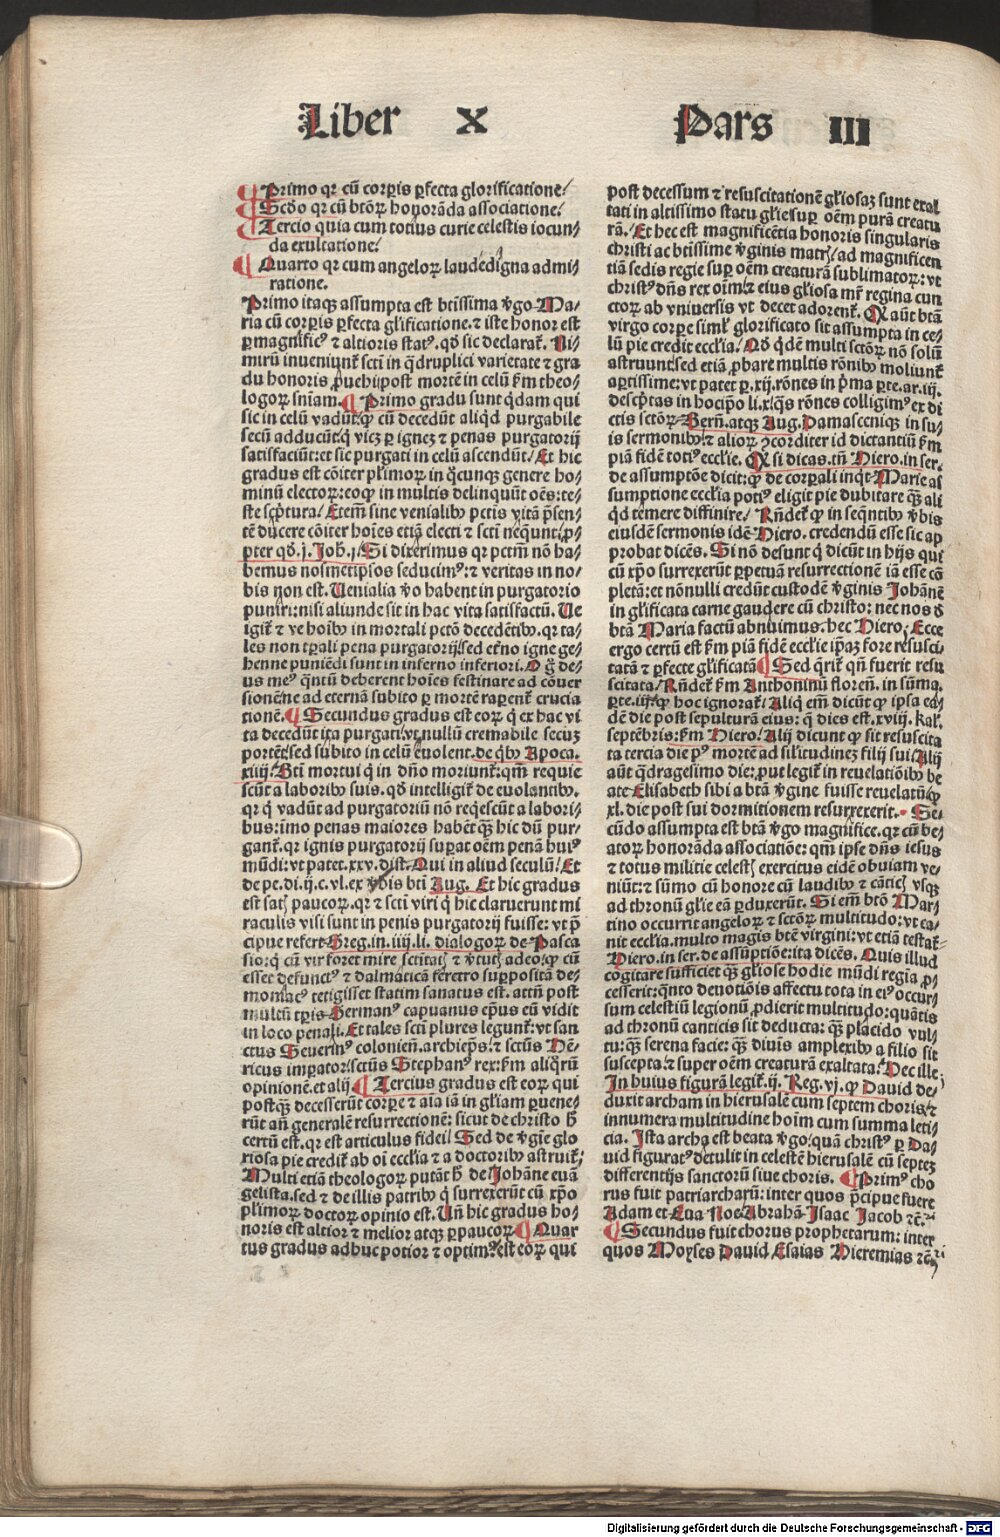 Liber X Pars III
¶ Primo qr cū corꝑis ꝑfecta glorificatione/
¶ Scďo qr cū btōꝝ honorāda associatione/
¶ Tercio quia cum totius curie celestis iocun/
da exultatione/
¶ Quarto qr cum angeloꝝ laudedigna admi/
ratione.
Primo itaqꝫ assumpta est btissima ꝟgo Ma/
ria cū corꝑis ꝑfecta gl̓ificatione. ⁊ iste honor est
ꝑ magnificꝰ ⁊ altioris statꝰ. qđ sic declarat̃. Ni/
mirū inueniunt̃ scti in q̄druplici varietate ⁊ gra
du honoris ꝓuehi post mortē in celū ẜm theo/
logoꝝ sniam. ¶ Primo gradu sunt q̇dam qui
sic in celū vadūt: ꝙ cū decedūt aliqd purgabile
secū adducūt: q̇ vicꝫ ꝑ ignez ⁊ penas purgatorij
satisfaciūt: et sic purgati in celū ascendūt/ Et hic
gradus est cōiter pl̓imoꝝ in q̄cunqꝫ genere ho/
minū electoꝝ: eoꝙ in multis delinquūt oēs: te/
ste scptura/ Etem̄ sine venialibꝫ pctis vitā p̄sen/
tē ducere cōiter hoīes etiā electi ⁊ scti neq̇unt: ꝓ/
pter qđ. j. Joh̄. j. Si dixerimus qr pctm̄ nō ha/
bemus nosmetipsos seducimꝰ: ⁊ veritas in no/
bis non est. Uenialia ꝟo habent in purgatorio
puniri: nisi aliunde sit in hac vita satisfactū. Ue
igit̃ ⁊ ve hoībꝫ in mortali pctō decedētibꝫ. qr ta/
les non tꝑali pena purgatorij: sed et̓no igne ge/
henne puniēdi sunt in inferno inferiori. O g̊ de/
us meꝰ q̄ntū deberent hoīes festinare ad cōuer
sionē: ne ad eternā subito ꝑ mortē rapent̃ crucia
tionē. ¶ Secundus gradus est eoꝝ q̇ ex hac vi
ta decedūt ita purgati: vt nullū cremabile secuꝫ
portēt: sed subito in celū euolent. de q̇bꝫ Apoca.
xiiij. Bti mortui q̇ in dno moriunt̃: qm̄ requie
scūt a laboribꝫ suis. qđ intelligit̃ de euolantibꝫ.
qr q̇ vadūt ad purgatoriū nō reqescūt a labori/
bus: imo penas maiores habēt qꝫ hic dū pur/
gant̃. qr ignis purgatorij suꝑat oēm penā huiꝰ
mūdi: vt patet. xxv. dist. Qui in aliud seculū/ Et
de pe. di. ij. c. vl. ex ꝟbis bti Aug. Et hic gradus
est satꝫ paucoꝝ. qr ⁊ scti viri q̇ hic claruerunt mi
raculis visi sunt in penis purgatorij fuisse: vt p̄
cipue refert Greg. in. iiij. li. dialogoꝝ de Pasca
sio: q̇ cū vir foret mire sctitatꝫ ⁊ ꝟtutꝫ adeo: ꝙ cū
esset defunctꝰ ⁊ dalmaticā feretro suppositā de/
moniacꝰ tetigisset statim sanatus est. attn̄ post
multū tꝑis Germanꝰ capuanus eṗus eū vidit
in loco penali. Et tales scti plures legunt̃: vt san
ctus Seuerinꝰ colonien̄. archieṗs: ⁊ sctus Hē/
ricus imꝑator: sctus Stephanꝰ rex: ẜm aliq̊rū
opinionē. et alij ¶ Tercius gradus est eoꝝ qui
postqꝫ decesserūt corꝑe ⁊ aīa iā in gl̓iam ꝑuene/
rūt an̄ generalē resurrectionē: sicut de christo h̄
certū est. qr est articulus fidei/ Sed de ꝟgīe glo
riosa pie credit̃ ab oī eccl̓ia ⁊ a doctoribꝫ astruit̃:
Multi etiā theologoꝝ putāt h̄ de Johāne euā
gelista. sed ⁊ de illis patribꝫ q̇ surrexerūt cū xp̄o
pl̓imoꝝ doctoꝝ opinio est. Un̄ hic gradus ho/
noris est altior ⁊ melior atqꝫ ꝑpaucoꝝ ¶ Quar
tus gradus adhuc potior ⁊ optimꝰ est eoꝝ qui
post decessum ⁊ resuscitationē gl̓iosaꝫ sunt exal
tati in altissimo statu gl̓ie suꝑ oēm purā creatu
rā. Et hec est magnificētia honoris singularis
christi ac btissime ꝟginis matrꝫ/ ad magnificen
tiā sedis regie suꝑ oēm creaturā sublimatoꝝ: vt
christꝰ dn̄s rex oīm: ⁊ eius gl̓iosa mr̄ regina cun
ctoꝝ ab vniuersis vt decet adorent̃. Qr aūt btā
virgo corꝑe siml̓ glorificato sit assumpta in ce/
lū pie credit eccl̓ia/ Qđ q̇dē multi sctōꝝ nō solū
astruunt: sed etiā ꝓbare multis rōnibꝫ moliunt̃
aꝑtissime: vt patet ꝑ. xij. rōnes in p̄ma ꝑte. ar. iij.
descptas in hoc ipo li. x. qs rōnes colligimꝰ ex di
ctis sctōꝝ Bern̄. atqꝫ Aug. Damascenique in su/
is sermonibꝫ: ⁊ alioꝝ ꝯcorditer id dictantiū ẜm
piā fidē totiꝰ eccl̓ie. Qr si dicas. tn̄ Hiero. in ser.
de assumptōe dicit: ꝙ de corꝑali inq̇t Marie as
sumptione eccl̓ia potiꝰ eligit pie dubitare qꝫ ali
qd temere diffinire/ Rn̄det̃ ꝙ in seqntibꝫ ꝟbis
eiusdē sermonis idē Hiero. credendū esse sic ap
probat dicēs. Si nō desunt q̇ dicūt in hijs qui
cū xp̄o surrexerūt ꝑpetuā resurrectionē iā esse cō
pletā: et nōnulli credūt custodē ꝟginis Johānē
in gl̓ificata carne gaudere cū christo: nec nos đ
btā Maria factū abnuimus. hec Hiero. Ecce
ergo certū est ẜm piā fidē eccl̓ie ip̄aꝫ fore resusci/
tatā ⁊ ꝑfecte gl̓ificatā ¶ Sed q̄rit̃ qn̄ fuerit resu
scitata/ Rn̄det̃ ẜm Anthoninū floren̄. in sūma.
ꝑte. iij. ꝙ hoc ignorat̃/ Aliq̇ em̄ dicūt ꝙ ipsa ea/
dē die post sepulturā eius: q̄ dies est. xviij. kal̓.
septēbris: ẜm Hiero/ Alij dicunt ꝙ sit resuscita
ta tercia die pꝰ mortē ad sil̓itudinez filij sui/ Alij
aūt q̄dragesimo die: ꝓut legit̃ in reuelatiōibꝫ be
ate Elisabeth sibi a btā ꝟgine fuisse reuelatū: ꝙ
xl. die post sui dormitionem resurrexerit. Se/
cūdo assumpta est btā ꝟgo magnifice. qr cū be/
atoꝝ honorāda associatiōe: qm̄ ipse dn̄s iesus
⁊ totus militie celestꝫ exercitus eidē obuiam ve/
niūt: ⁊ sūmo cū honore cū laudibꝫ ⁊ cāticꝫ vsqꝫ
ad thronū gl̓ie eā ꝑduxerūt. Si em̄ btō Mar/
tino occurrit angeloꝝ ⁊ sctōꝝ multitudo: vt ca/
nit eccl̓ia. multo magis btē virgini: vt etiā testat̃
Hiero. in ser. de assūptiōe: ita dicēs. Quis illud
cogitare sufficiet qꝫ gl̓iose hodie mūdi regia ꝓ/
cesserit: qnto deuotiōis affectu tota in eiꝰ occur/
sum celestiū legionū ꝓdierit multitudo: quātis
ad thronū canticis sit deducta: qꝫ placido vul/
tu: qꝫ serena facie: qꝫ diuīs amplexibꝫ a filio sit
suscepta: ⁊ super oēm creaturā exaltata. Hec ille/
In huius figurā legit̃. ij. Reg. vj. ꝙ Dauid de/
duxit archam in hierusalē cum septem choris: ⁊
innumera multitudine hoīm cum summa leti/
cia. Ista archa est beata ꝟgo: quā christꝰ ꝑ Da/
uid figuratꝰ detulit in celestē hierusalē cū septeꝫ
differentijs sanctorū siue choris. ¶ Primꝰ cho
rus fuit patriarcharū: inter quos p̄cipue fuere
Adam et Eua Noe Abrahā Isaac Jacob ⁊c̄.
¶ Secundus fuit chorus prophetarum: inter
quos Moyses Dauid Esaias Hieremias ⁊c̄
Digitalisierung gefördert durch die Deutsche Forschungsgemeinschaft - DFG